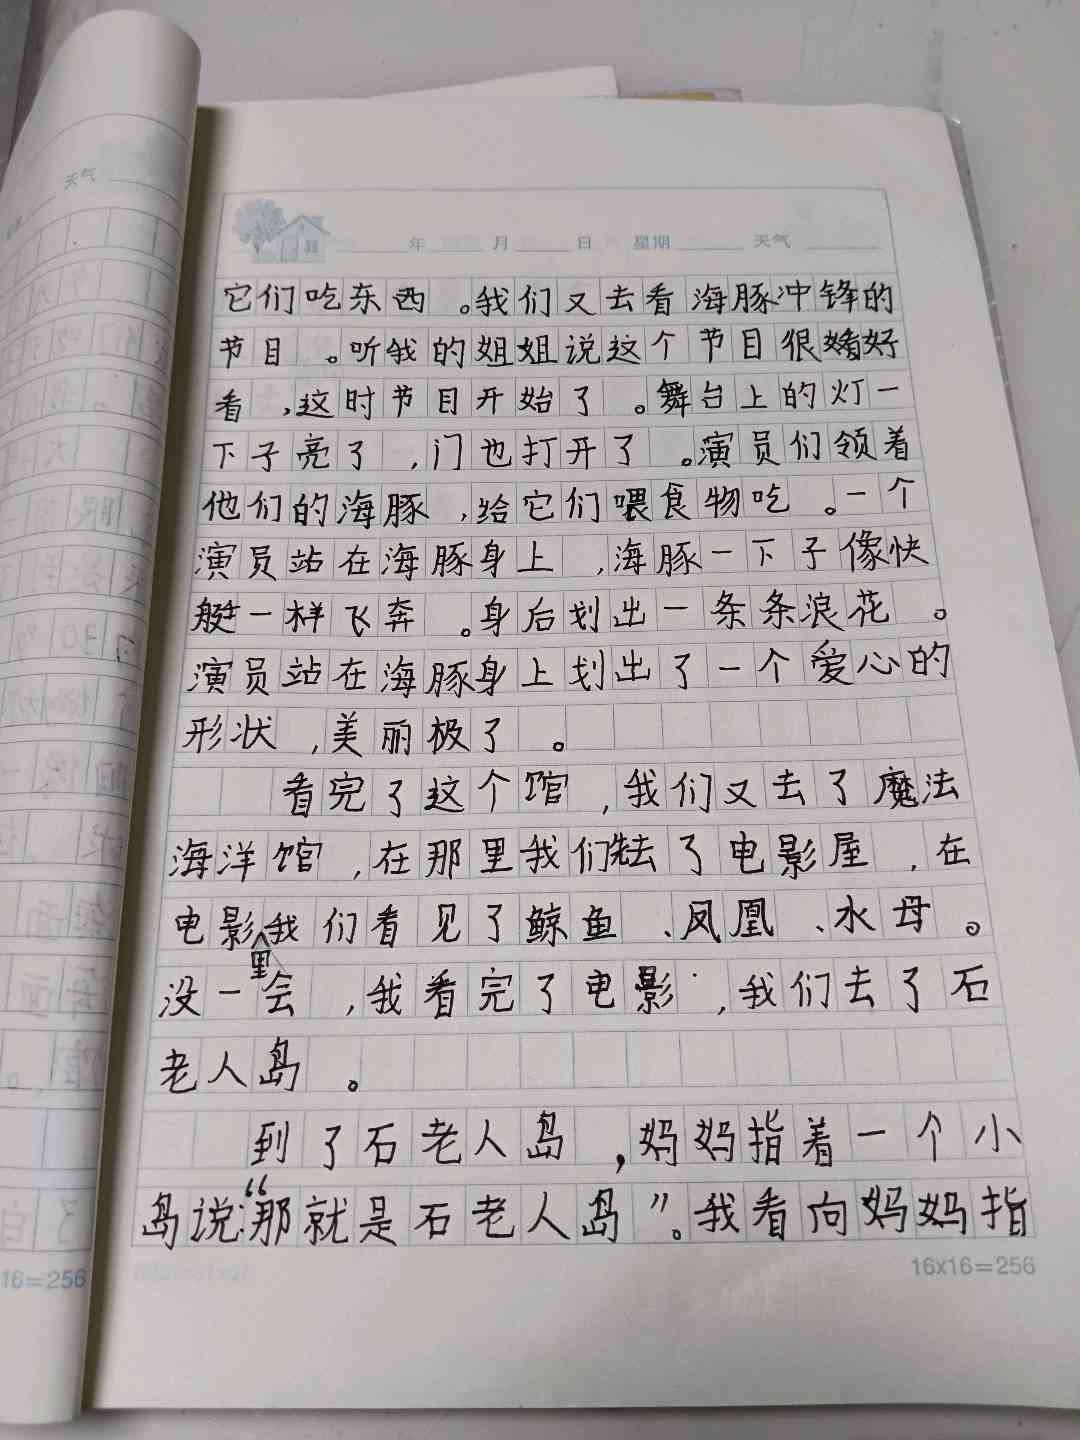 天气
年 月 日 星期 天气
它们吃东西。我们又去看海豚冲锋的
节目。听我的姐姐说这个节目很好
看,这时节目开始了。舞台上的灯一
下子亮了,门也打开了。演员们领着
他们的海豚,给它们喂食物吃。一个
演员站在海豚身上,海豚一下子像快
艇一样飞奔。身后划出一条条浪花。
演员站在海豚身上划出了一个爱心的
形状,美丽极了。
看完了这个馆,我们又去了魔法
海洋馆,在那里我们先去了电影屋,在
电影里我们看见了鲸鱼、凤凰、水母。
没一会,我看完了电影,我们去了石
老人岛。
到了石老人岛,妈妈指着一个小
岛说:“那就是石老人岛”。我看向妈妈指
16=256
16x16=256